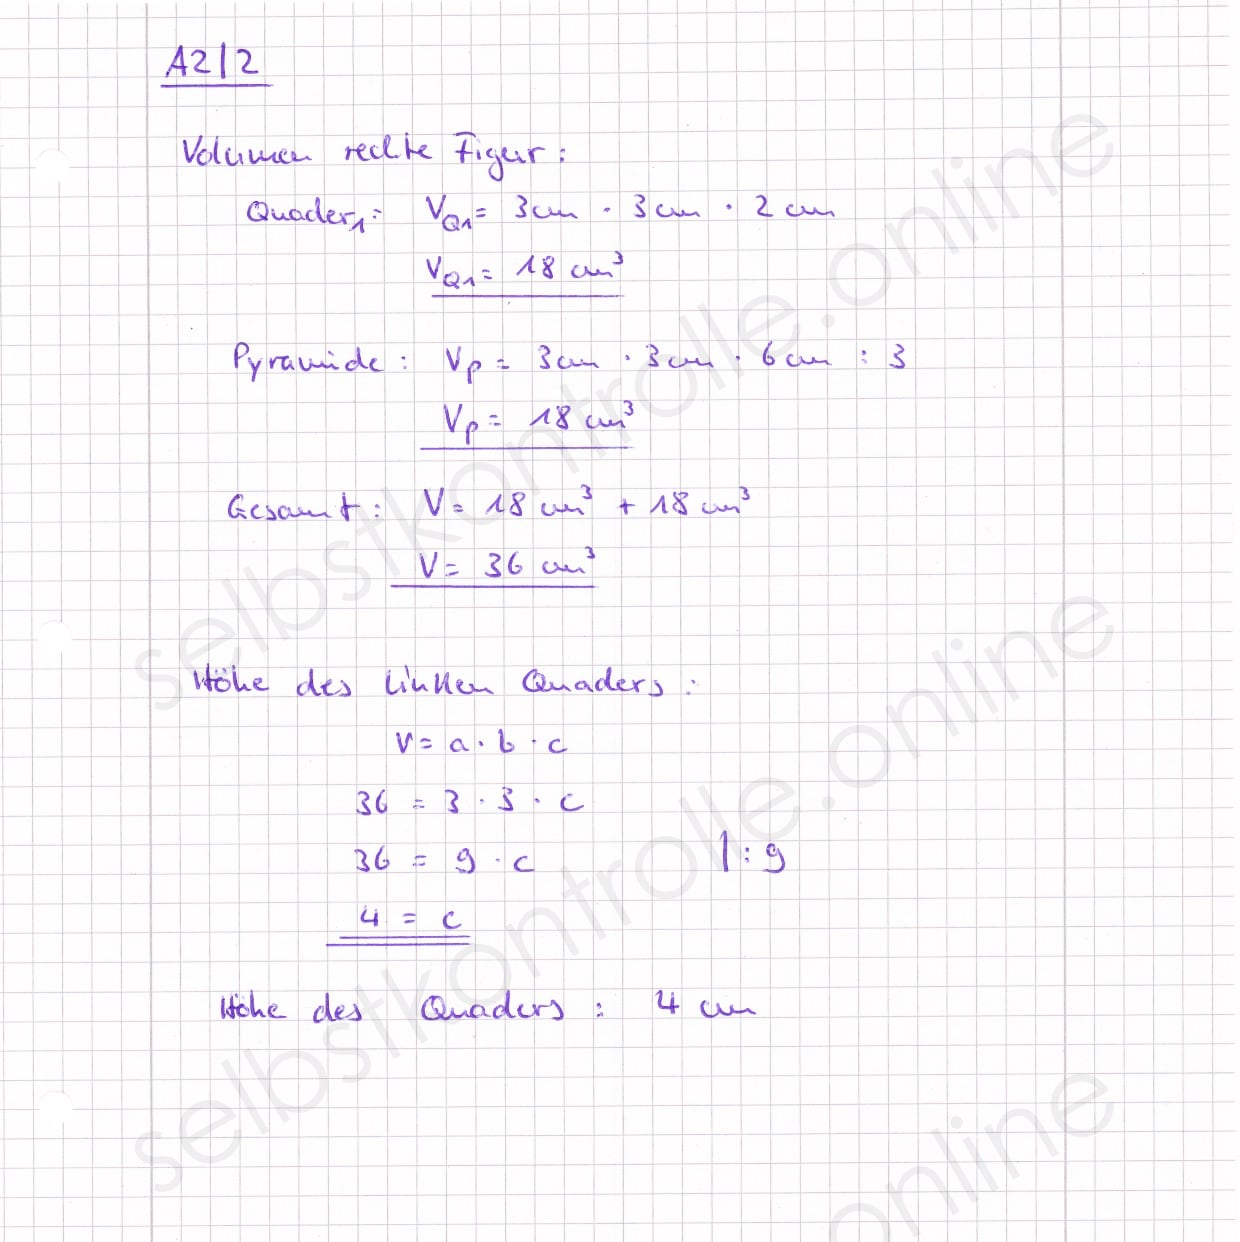 A2|2
Volumen rechte Figur:
Quader₁: V_Q1 = 3cm · 3cm · 2cm
V_Q1 = 18 cm³
Pyramide: V_P = 3cm · 3cm · 6cm : 3
V_P = 18 cm³
Gesamt: V = 18 cm³ + 18 cm³
V = 36 cm³
Höhe des linken Quaders:
V = a · b · c
36 = 3 · 3 · c
36 = 9 · c |:9
4 = c
Höhe des Quaders: 4 cm
selbstkontrolle.online
selbstkontrolle.online
online